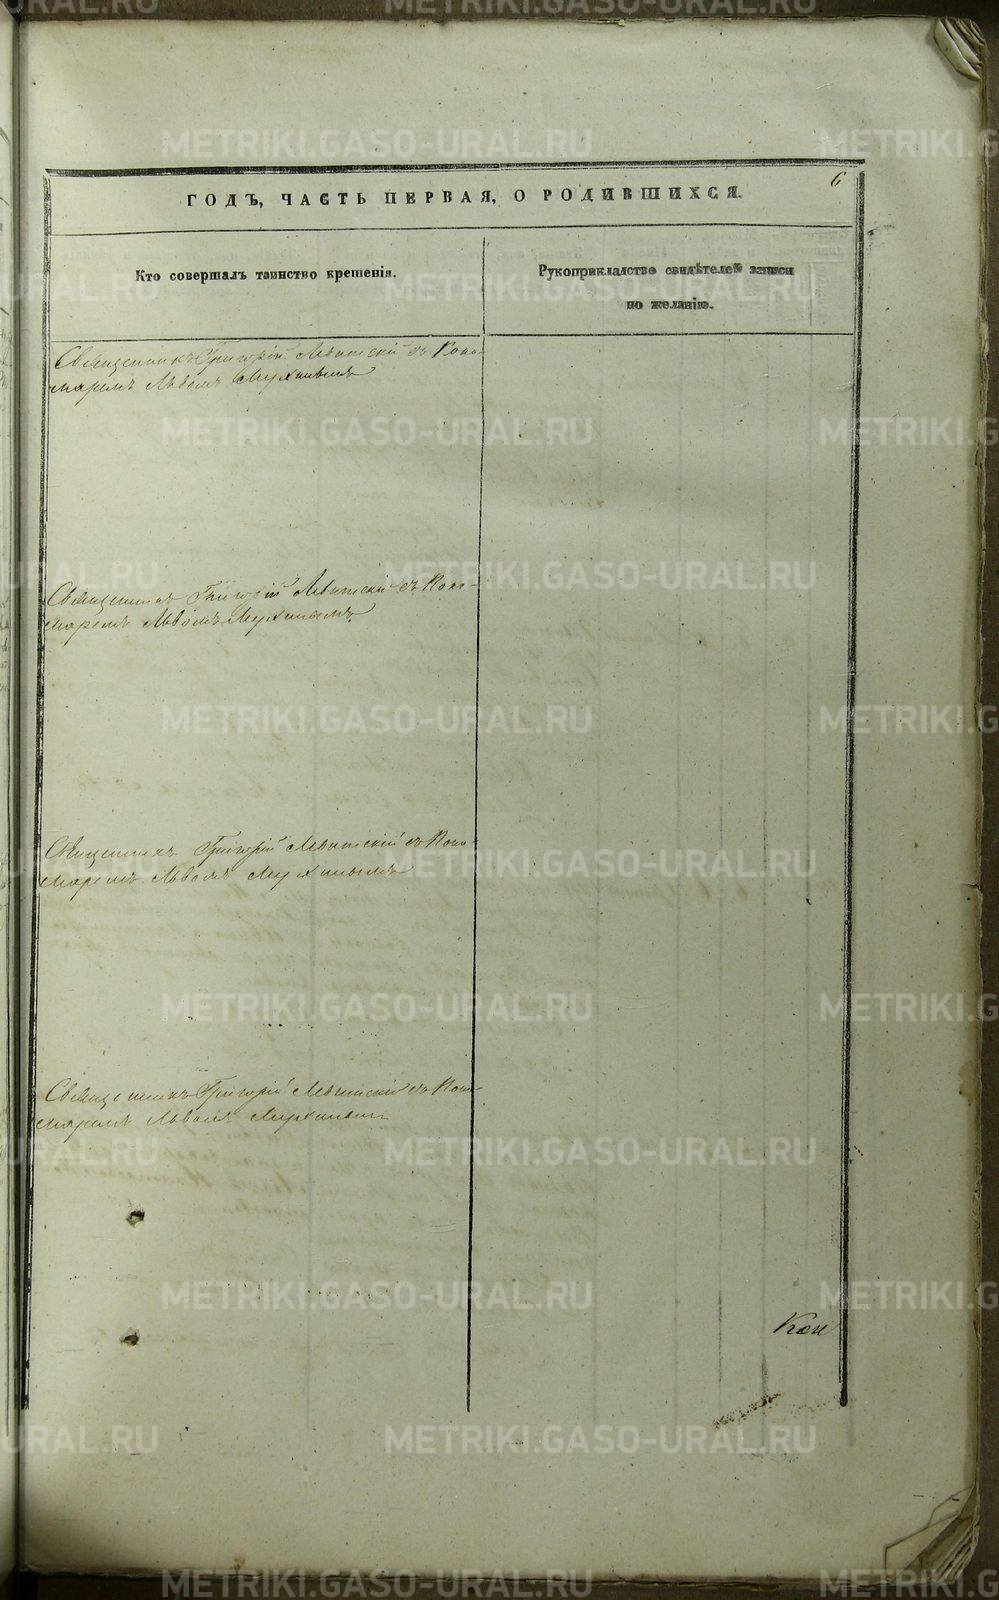 6
ГОДЪ, ЧАСТЬ ПЕРВАЯ, О РОДИВШИХСЯ.
Кто совершалъ таинство крещенія.
Рукоприкладство свидѣтелей записи
по желанію.
Священникъ Григорій Левитскій съ Поно-
маремъ Львомъ
Священникъ Григорій Левитскій съ Поно-
маремъ Львомъ
Священникъ Григорій Левитскій съ Поно-
маремъ Львомъ
Священникъ Григорій Левитскій съ Поно-
маремъ Львомъ
METRIKI.GASO-URAL.RU